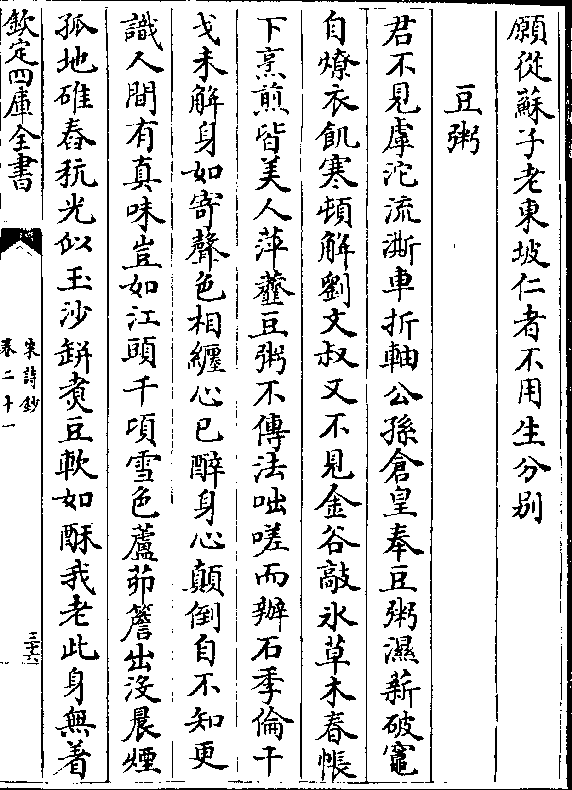 願從蘇子老東坡仁者不用生分别
豆粥
君不見虖沱流澌車折軸公孫倉皇奉豆粥濕薪破竈
自燎衣飢寒頓解劉文叔又不見金谷敲氷草木春帳
下烹煎皆美人萍虀豆粥不傳法咄嗟而辦石季倫干
戈未解身如寄聲色相纏心已醉身心顛倒自不知更
識人間有真味豈如江頭千頃雪色蘆茆簷出沒晨煙
孤地碓舂秔光似玉沙缾煑豆軟如酥我老此身無著
欽定四庫全書
宋詩鈔
卷二十一
三十六